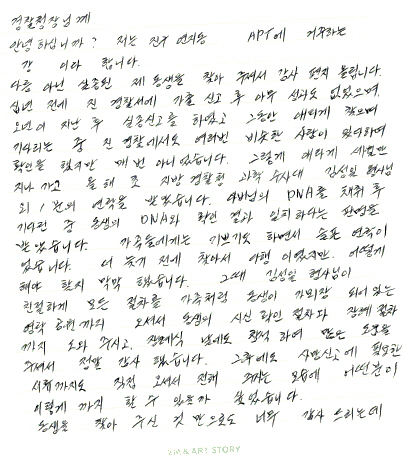 경찰청장님께
안녕하십니까? 저는 진주 연지동 APT에 거주하는
강 이라 합니다.
다름 아닌 실종된 제 동생을 찾아 주셔서 감사 편지 올립니다.
십년 전에 진 경찰서에 가출 신고 후 아무 성과도 없었으며
오년이 지난 후 실종신고를 하였고 그동안 애타게 찾으며
기다리는 중 진 경찰에서도 여러번 비슷한 사람이 있다하며
확인을 했지만 매번 아니었습니다. 그렇게 애타게 세월만
지나가고 올해 초 지방경찰청 과학수사대 김성일 형사님
외 1분의 연락을 받았습니다. 어머님의 DNA를 채취 후
기다린 중 동생의 DNA와 확인 결과 일치하다는 판명을
받았습니다. 가족들에게는 기쁘기도 하면서 슬픈 연락이
었습니다. 너무 늦기 전에 찾아서 다행이였지만, 어떻게
해야 할지 막막 했습니다. 그때 김성일 형사님이
친절하게 모든 절차를 가족처럼 동생이 가매장 되어 있는
까지 오셔서 동생의 시신 확인 절차와 장례 절차
까지 도와 주시고, 장례식 날에도 참석하여 많은 도움을
주셔서 정말 감사 했습니다. 그후에도 사망신고에 필요한
서류까지도 직접 오셔서 전해 주시는 모습에 어떤분이
이렇게 까지 할 수 있을까 싶었습니다.
동생을 찾아 주신 것 만으로도 너무 감사 드리는데
ZIN & ART STORY